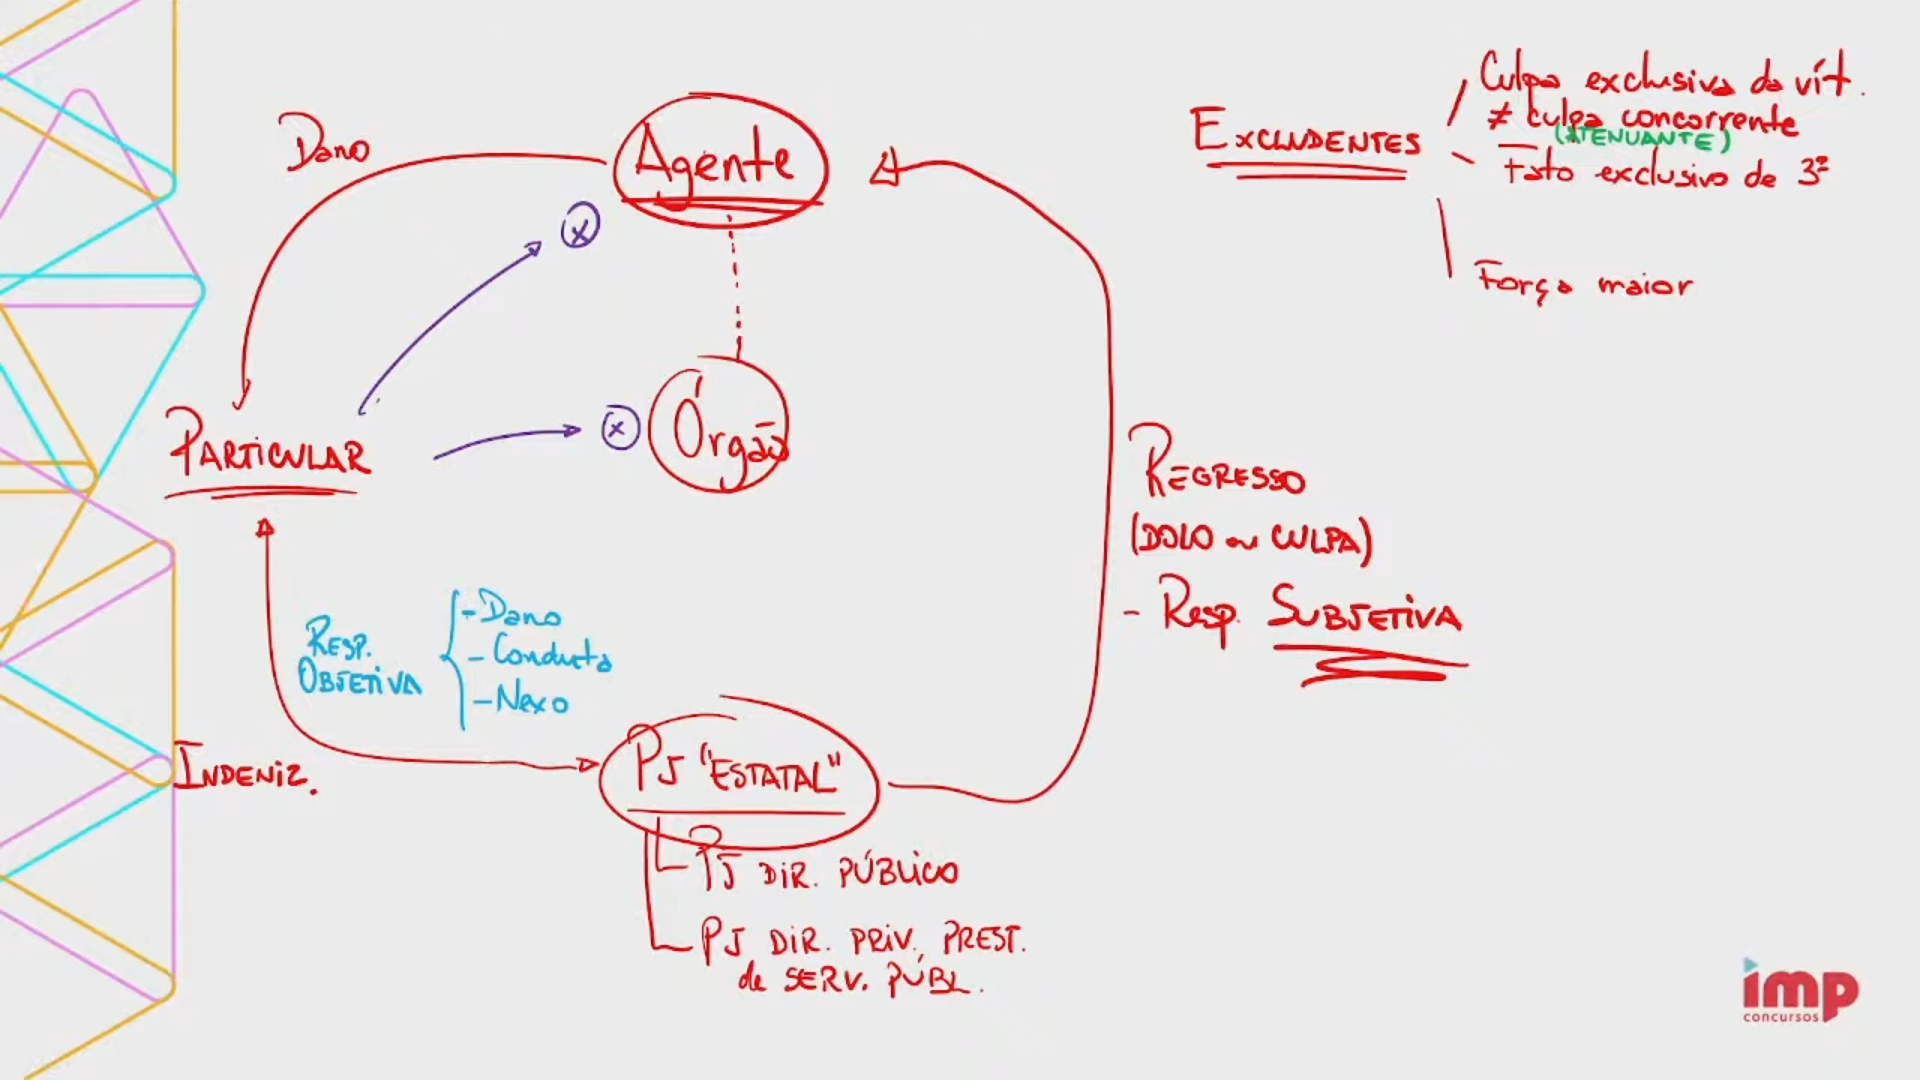 Dano
Agente
x
Particular
x
Órgão
Resp.
Objetiva
- Dano
- Conduta
- Nexo
Indeniz.
PJ "Estatal"
PJ Dir. Público
PJ Dir. Priv. Prest.
de Serv. Públ.
Regresso
(Dolo ou Culpa)
- Resp. Subjetiva
Excludentes
Culpa exclusiva da vít.
≠ culpa concorrente
(Atenuante)
Fato exclusivo de 3º
Força maior
imp
concursos